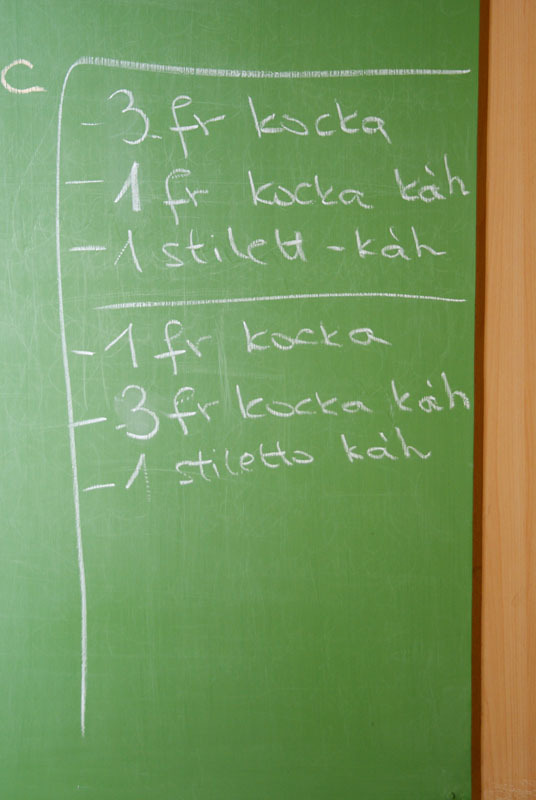 c
- 3 fr kocka
- 1 fr kocka káh
- 1 stilett - káh
- 1 fr kocka
- 3 fr kocka káh
- 1 stiletto káh